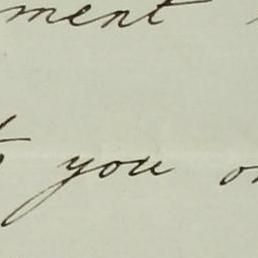 ment
you